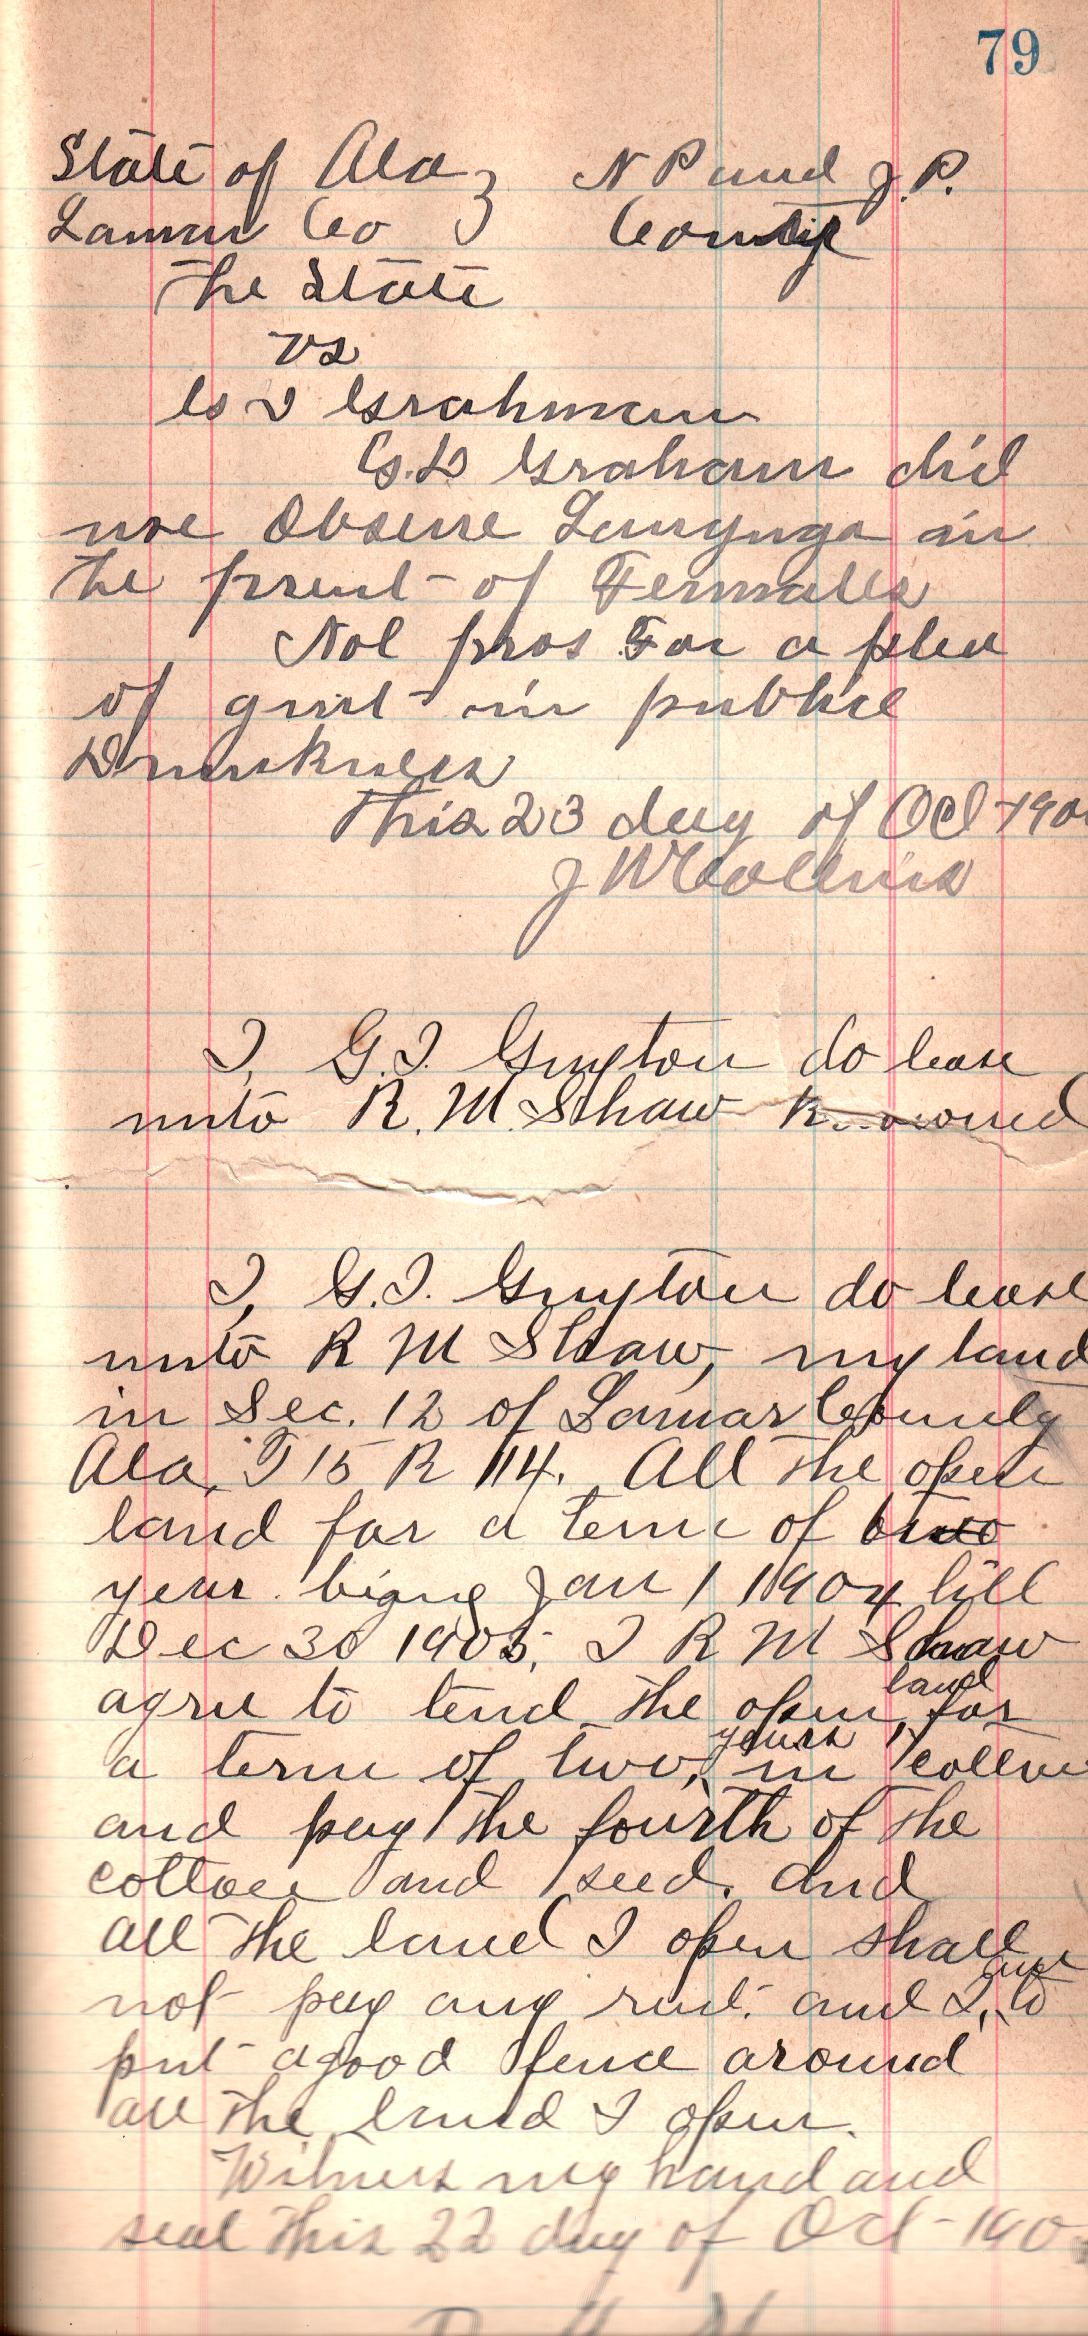 79
State of Ala } N P and J. P.
Lamar Co } County
The State
vs
Grahman
Graham did
use Obsene Lanynga in
the presnt of Femalles
Nol pros For a plea
of guilt in publice
Drunkness
This 23 day of Oct 190
J W Collins
I, G.I. Guyton do lease
unto R. M. Shaw
I, G.I. Guyton do lease
unto R M Shaw, my land
in Sec. 12 of Lamar County
Ala, T 15 R 14. All the open
land for a term of two
year Jan 1 1904 till
Dec 30 1905, I R M Shaw
agree to tend the open land for
a term of two years in
and pay the fourth of the
cotton and seed. And
all the land I open shall
not pay any rent. and I, to
put a good fence around
all the land I open.
Witness my hand and
seal this 22 day of Oct - 190